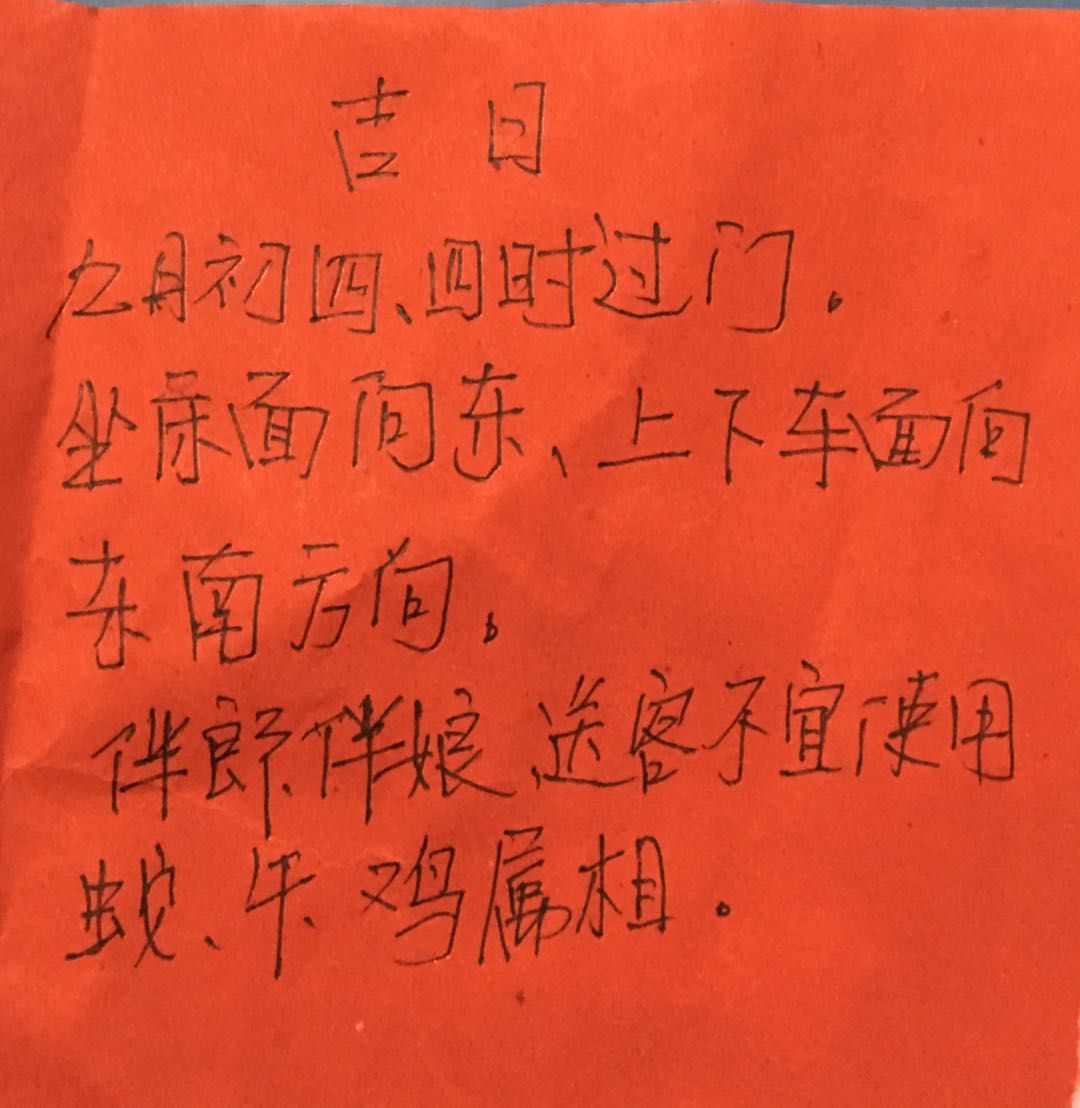 吉日
九月初四、四时过门。
坐床面向东、上下车面向
东南方向。
伴郎、伴娘、送客不宜使用
蛇、牛、鸡属相。